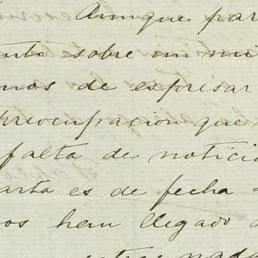 Aunque par
ento sobre un mi
mos de expresar
preocupacion que
falta de notici
arta es de fecha
os han llegado